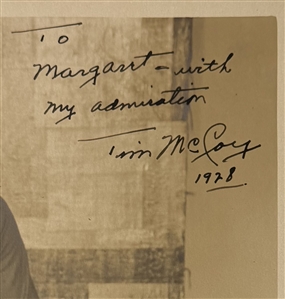 To
Margaret - with
my admiration
Tim McCoy
1928.